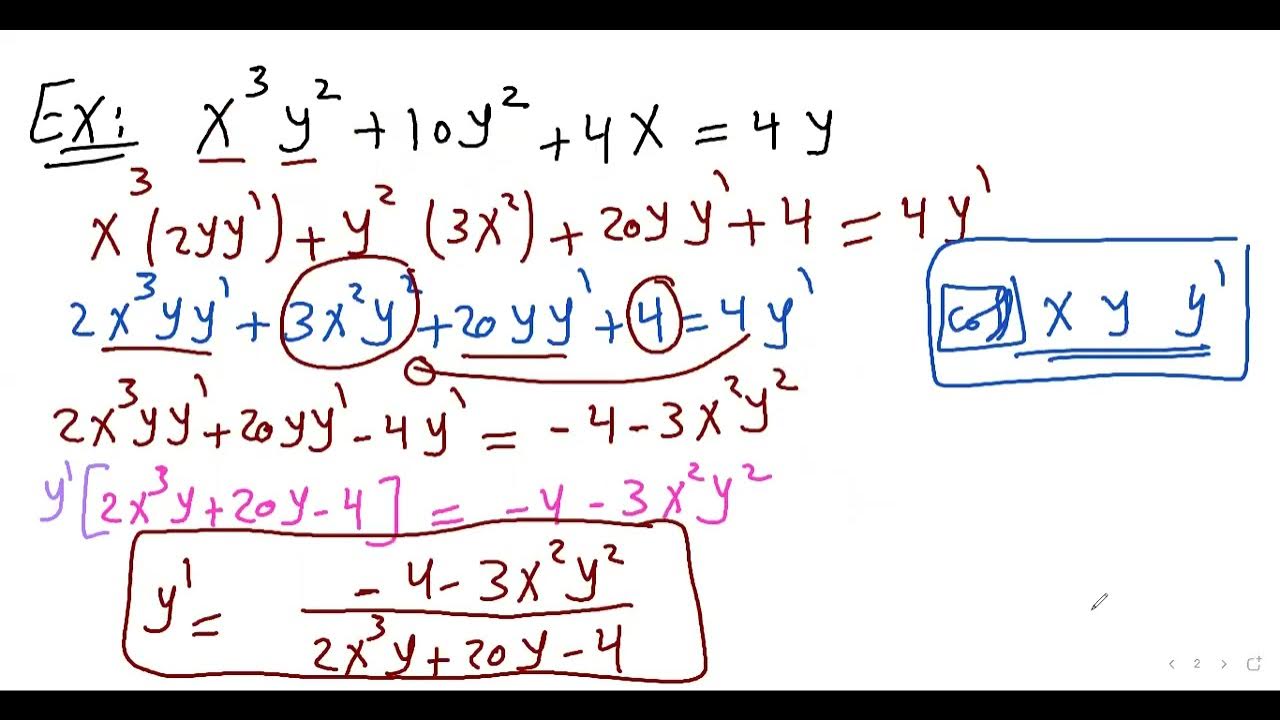 Ex: x³ y² + 10y² + 4x = 4y
x³ (2yy') + y² (3x²) + 20yy' + 4 = 4y'
2x³yy' + 3x²y² + 20yy' + 4 = 4y'
x y y'
2x³yy' + 20yy' - 4y' = -4 - 3x²y²
y' [2x³y + 20y - 4] = -4 - 3x²y²
y' = (-4 - 3x²y²) / (2x³y + 20y - 4)
< 2 >